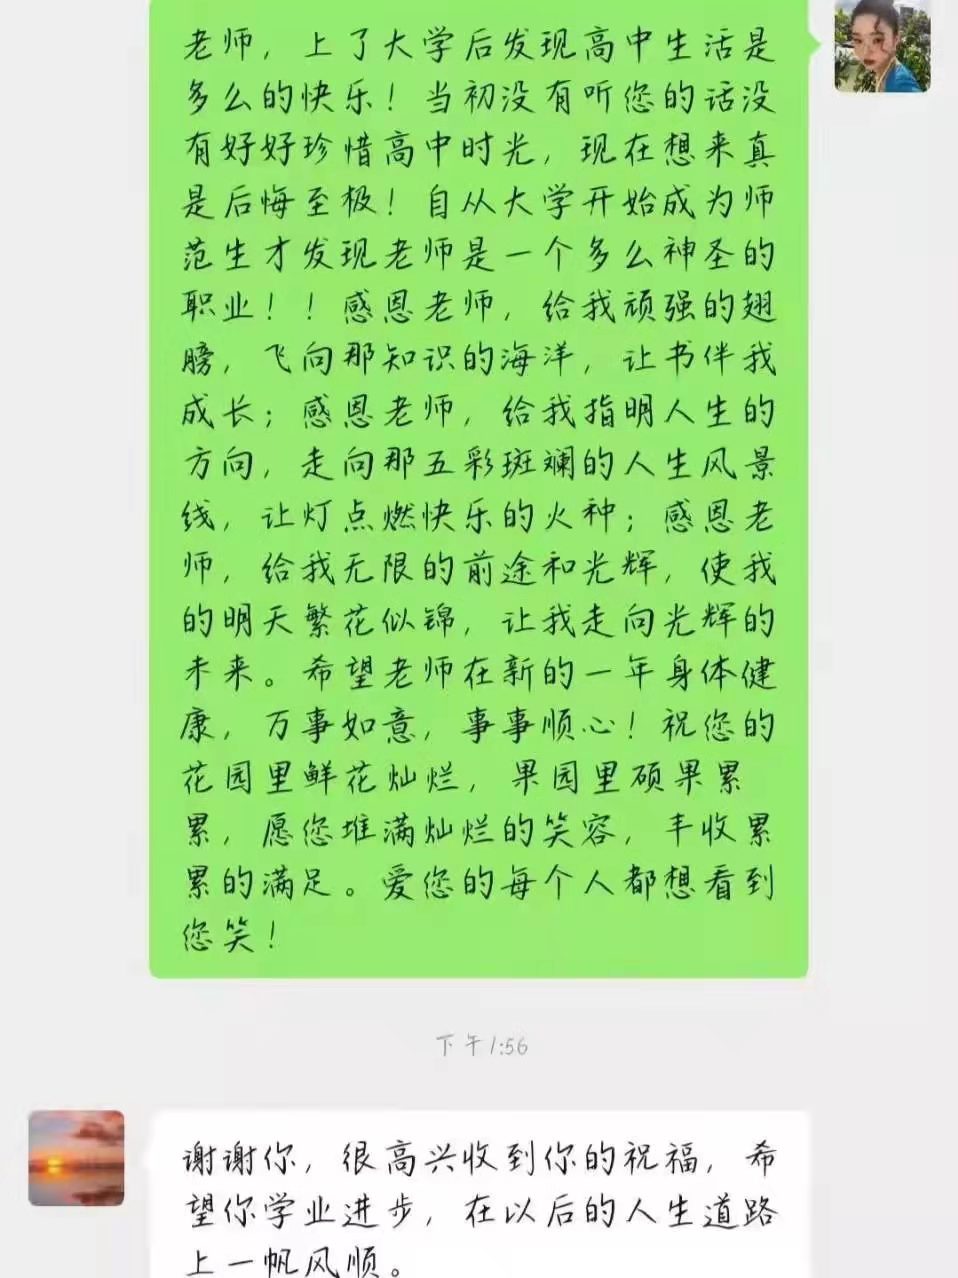 老师，上了大学后发现高中生活是
多么的快乐！当初没有听您的话没
有好好珍惜高中时光，现在想来真
是后悔至极！自从大学开始成为师
范生才发现老师是一个多么神圣的
职业！！感恩老师，给我顽强的翅
膀，飞向那知识的海洋，让书伴我
成长；感恩老师，给我指明人生的
方向，走向那五彩斑斓的人生风景
线，让灯点燃快乐的火种；感恩老
师，给我无限的前途和光辉，使我
的明天繁花似锦，让我走向光辉的
未来。希望老师在新的一年身体健
康，万事如意，事事顺心！祝您的
花园里鲜花灿烂，果园里硕果累
累，愿您堆满灿烂的笑容，丰收累
累的满足。爱您的每个人都想看到
您笑！
下午1:56
谢谢你，很高兴收到你的祝福，希
望你学业进步，在以后的人生道路
上一帆风顺。